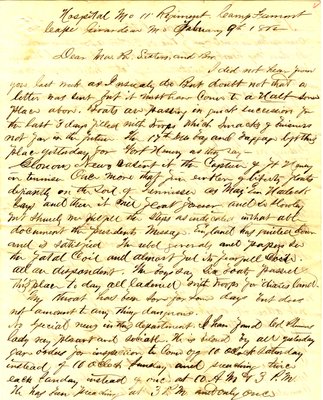 Hospital Mo 11 Regiment Camp Fremont
Cape Girardeau Mo February 9th 1862
Dear Mar Pa Sisters and Bro
I did not hear from
you last week as I usually do But doubt not that a
letter was sent but it must have Come to a Halt Some
Place above. Boats are passing in quick succession for
the last 3 days filled with troops which Smacks of business
not far in the future. The 17th Ills boys and baggage left this
place yesterday for Fort Henry as they say
Glorious News aint it the Capture of Ft Henry
in Tennessee Once more that emblem of Liberty floats
defiantly on the Soil of Tennessee as Maj Gen Halleck
Says and there it will float forever and So Slowly
but Surely we fulfill the Steps as indicated in that able
document the Presidents Message England has quieted down
and is Satisfied The rebel and papers see
the fatal Coil and almost feel its
all are despondent. The long day boats passed
this place to day all ladened with troops for
My throat has been Sore for Some days but does
not amount to any thing dangerous.
No Special news in this department I have found
lady very pleasant and Sociable. He issued by all yesterday
Gen orders for inspection to Come of 10 oclock Saturday
instead of 10 oclock Sunday and preaching twice
each Sunday instead of once at 10 A M & 3 P.M.
He has been preaching at 3 P.M. and only once